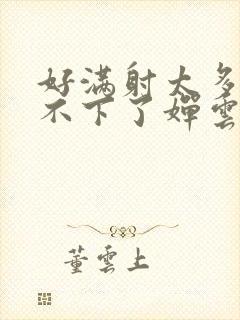 好满射太多
不下了婵雲
董雲上